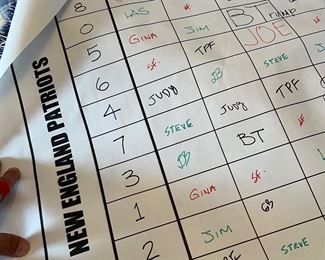 NEW ENGLAND PATRIOTS
8 LAS SF.
0 GINA JIM BTrump
5 SF. TPF JOE
6 JUDY JB STEVE
4 STEVE Judy TPF
7 JB BT STEVE
3 GINA SF.
1 JIM
2 STEVE